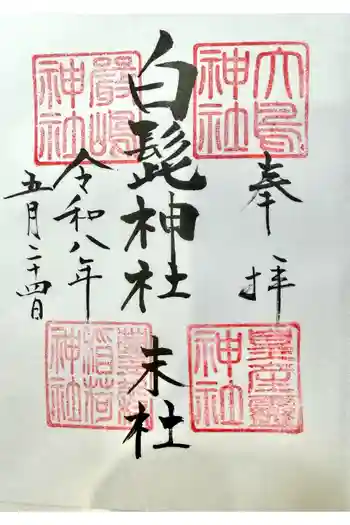 奉拝
大鳥神社
皇産霊神社
白髭神社
末社
厳嶋神社
令和八年
五月二十四日
稲荷神社